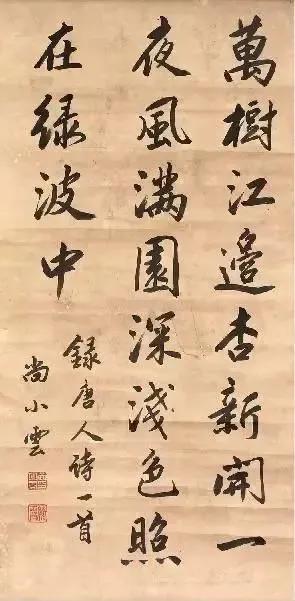 萬樹江邊杏新開一
夜風滿園深淺色照
在綠波中
録唐人詩一首
尚小雲